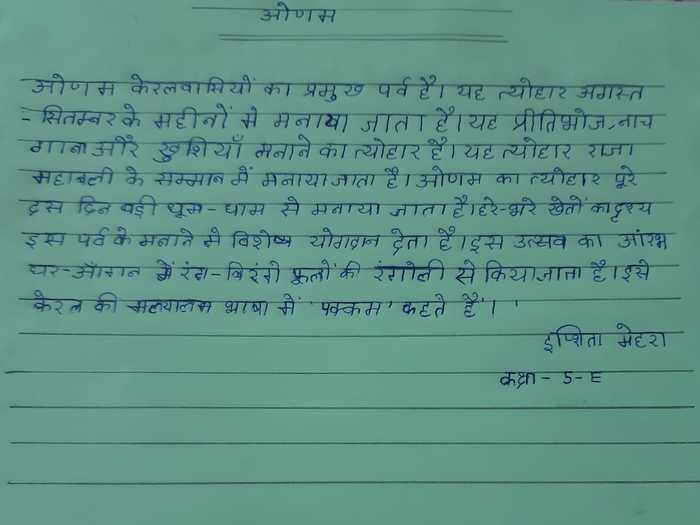 ओणम
ओणम केरलवासियों का प्रमुख पर्व है। यह त्योहार अगस्त
-सितम्बर के महीनों मे मनाया जाता है। यह प्रीतिभोज, नाच
गाना और खुशियाँ मनाने का त्योहार है। यह त्योहार राजा
महाबली के सम्मान में मनाया जाता है। ओणम का त्योहार पूरे
दस दिन बड़ी धूम-धाम से मनाया जाता है। हरे-भरे खेतों का दृश्य
इस पर्व के मनाने मे विशेष योगदान देता है। इस उत्सव का आंरभ
घर-आँगन में रंग-बिरंगी फूलों की रंगोली से किया जाता है। इसे
केरल की मलयालम भाषा में 'पक्कम' कहते हैं।
इप्शिता मेहरा
कक्षा - 5-E